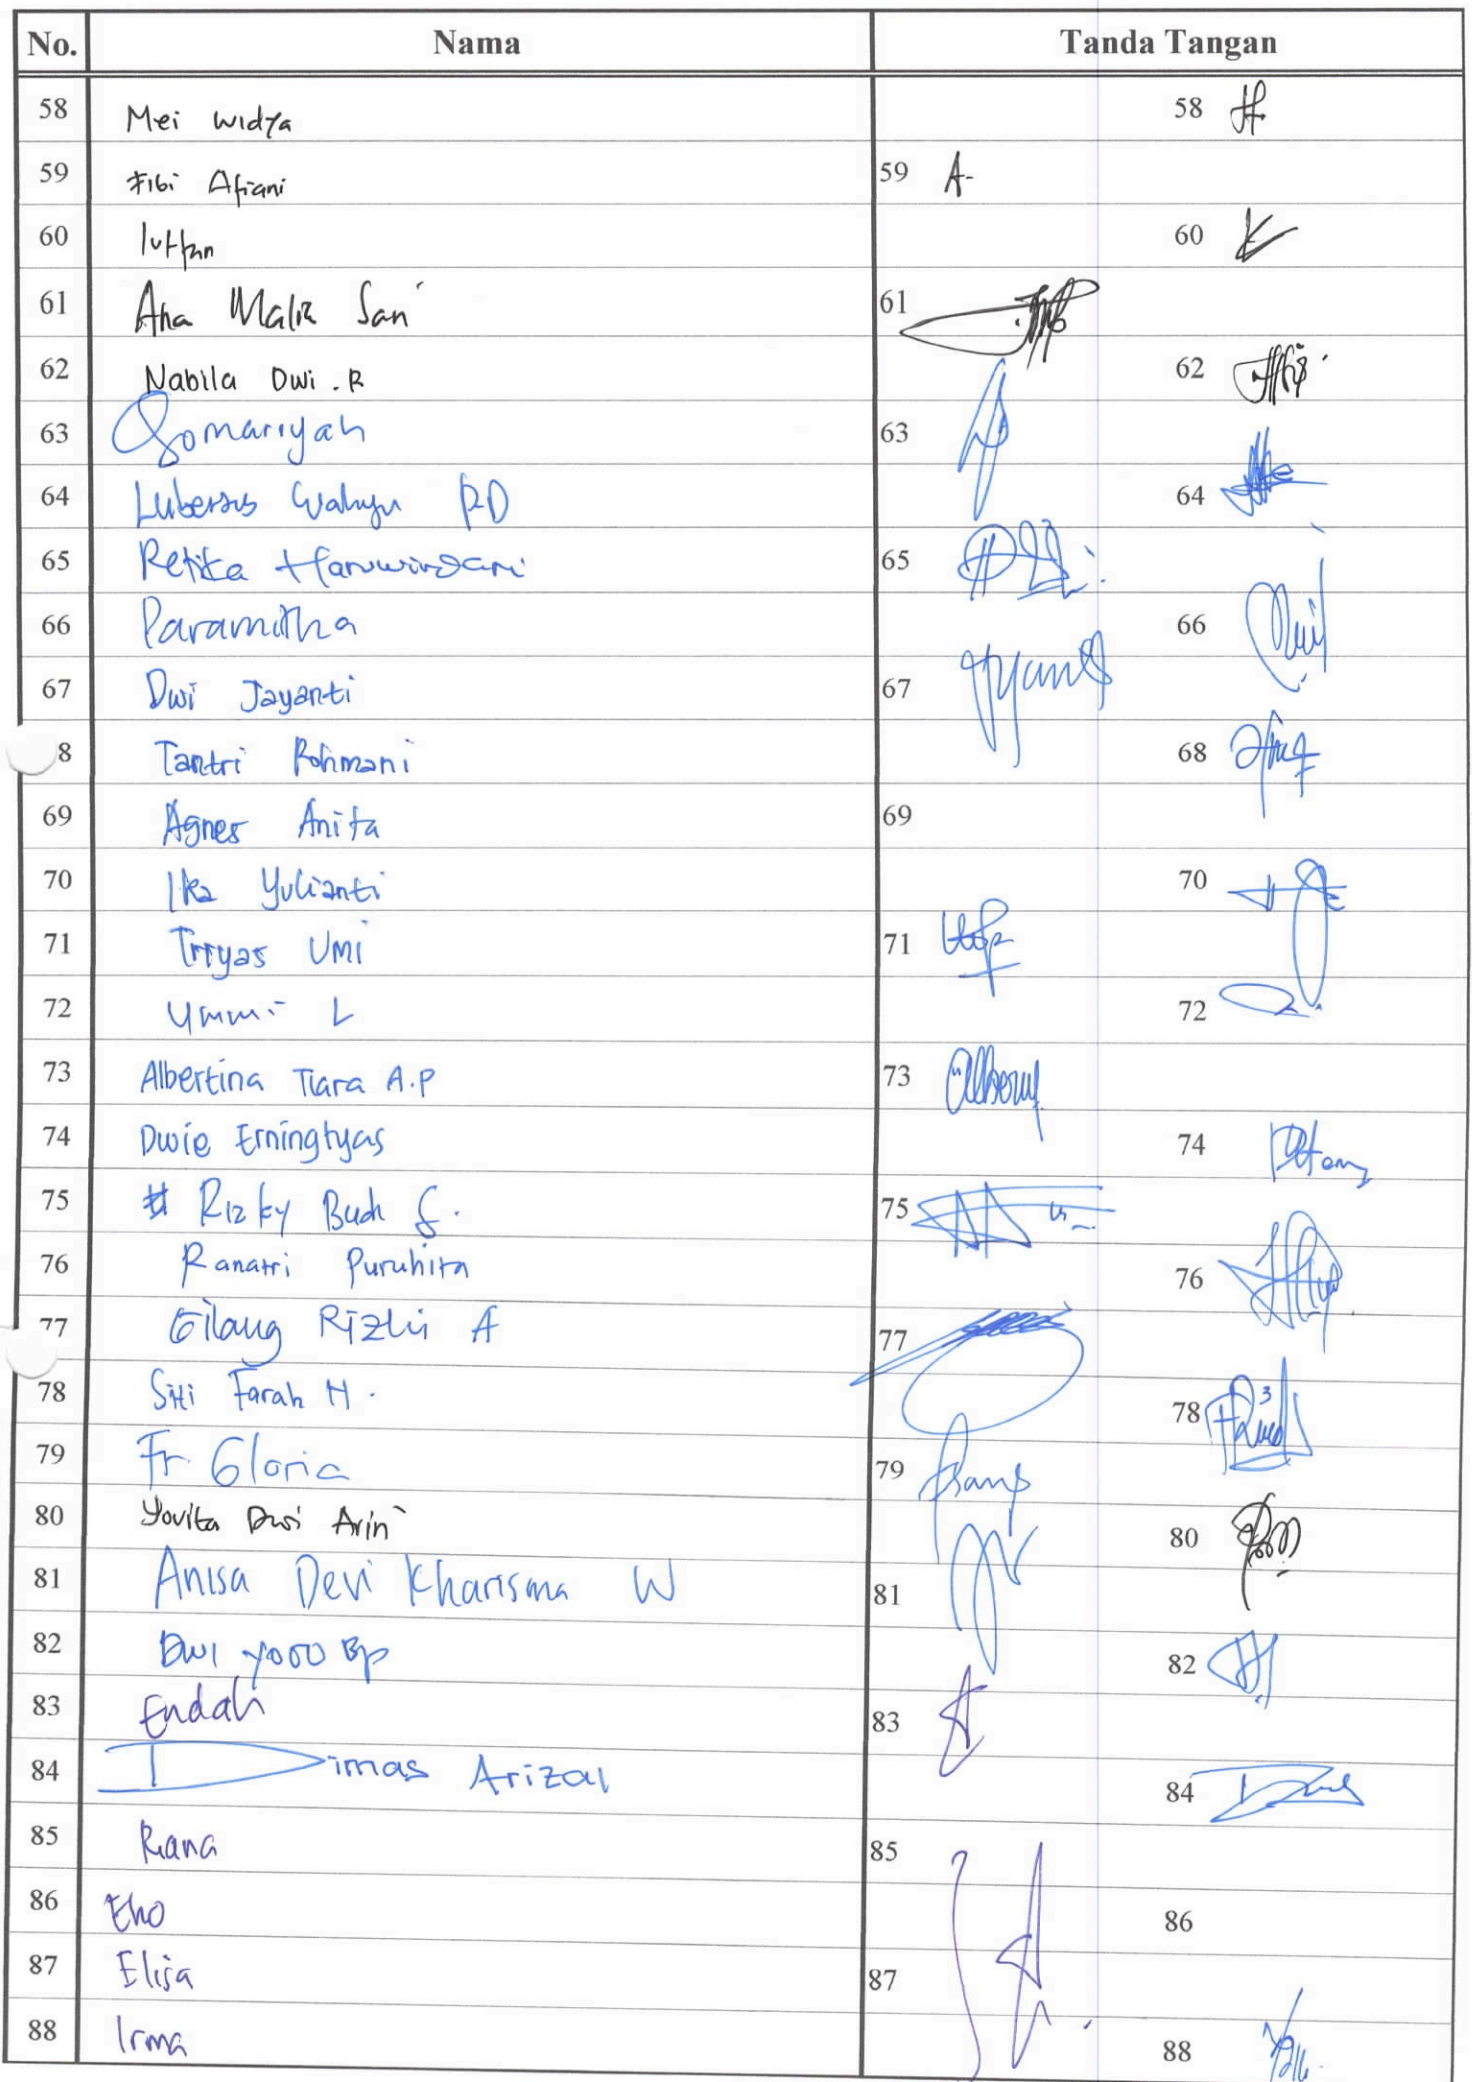 No. Nama Tanda Tangan
58 Mei Widya 58
59 Fibi Afiani 59
60 60
61 Ana Malik Sari 61
62 Nabila Dwi . R 62
63 Qomariyah 63
64 Wahyu RD 64
65 Retika Haruwindari 65
66 Paramitha 66
67 Dwi Jayanti 67
8 Tantri Rohmani 68
69 Agnes Anita 69
70 Ika Yulianti 70
71 Umi 71
72 Ummi L 72
73 Albertina Tiara A.P 73
74 Dwie Erningtyas 74
75 Rizky Budi S. 75
76 Ranatri Puruhita 76
77 Gilang Rizki A 77
78 Siti Farah H. 78
79 Fr Gloria 79
80 Yovita Dwi Arin 80
81 Anisa Devi Kharisma W 81
82 Dwi 82
83 Endah 83
84 Dimas Arizal 84
85 Rana 85
86 Eko 86
87 Elisa 87
88 Irma 88